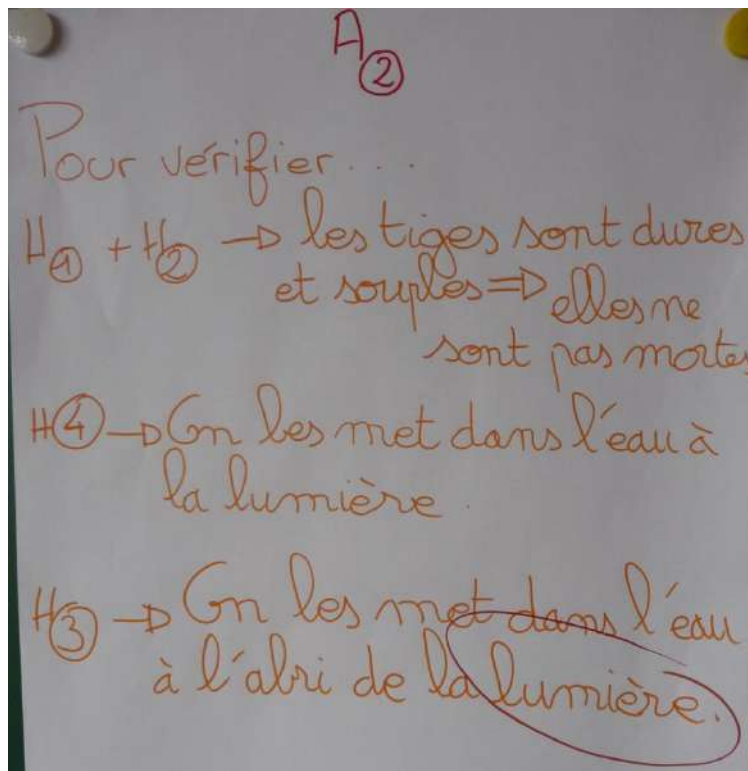 A②
Pour vérifier...
H① + H② → les tiges sont dures
et souples ⇒ elles ne
sont pas mortes
H④ → On les met dans l'eau à
la lumière.
H③ → On les met dans l'eau
à l'abri de la lumière.